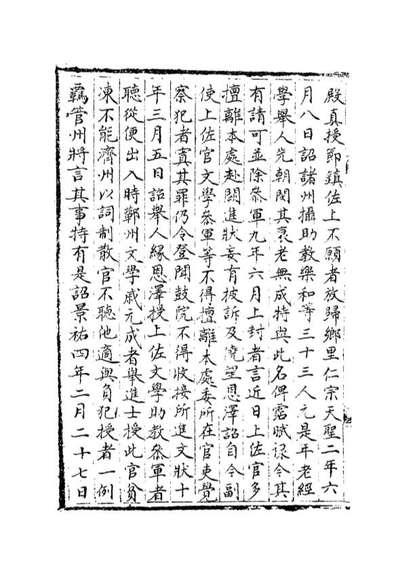 殿真授節鎮佐上不願者放歸鄉里仁宗天聖二年六
月八日詔諸州攝助教樂和等三十三人元是年老經
學舉人先朝閔其衰老無成特與此名俾霑賦祿今其
有請可並除參軍九年六月上封者言近日上佐官多
擅離本處赴闕進狀妄有披訴及僥望恩澤詔自今副
使上佐官文學參軍等不得擅離本處委所在官吏覺
察犯者寘其罪仍令登聞鼓院不得收接所進文狀十
年三月五日詔舉人緣恩澤授上佐文學助教參軍者
聽從便出入時鄭州文學戚元成者舉進士授此官貧
凍不能濟州以詞制散官不聽他適與負犯授者一例
羈管州將言其事特有是詔景祐四年二月二十七日